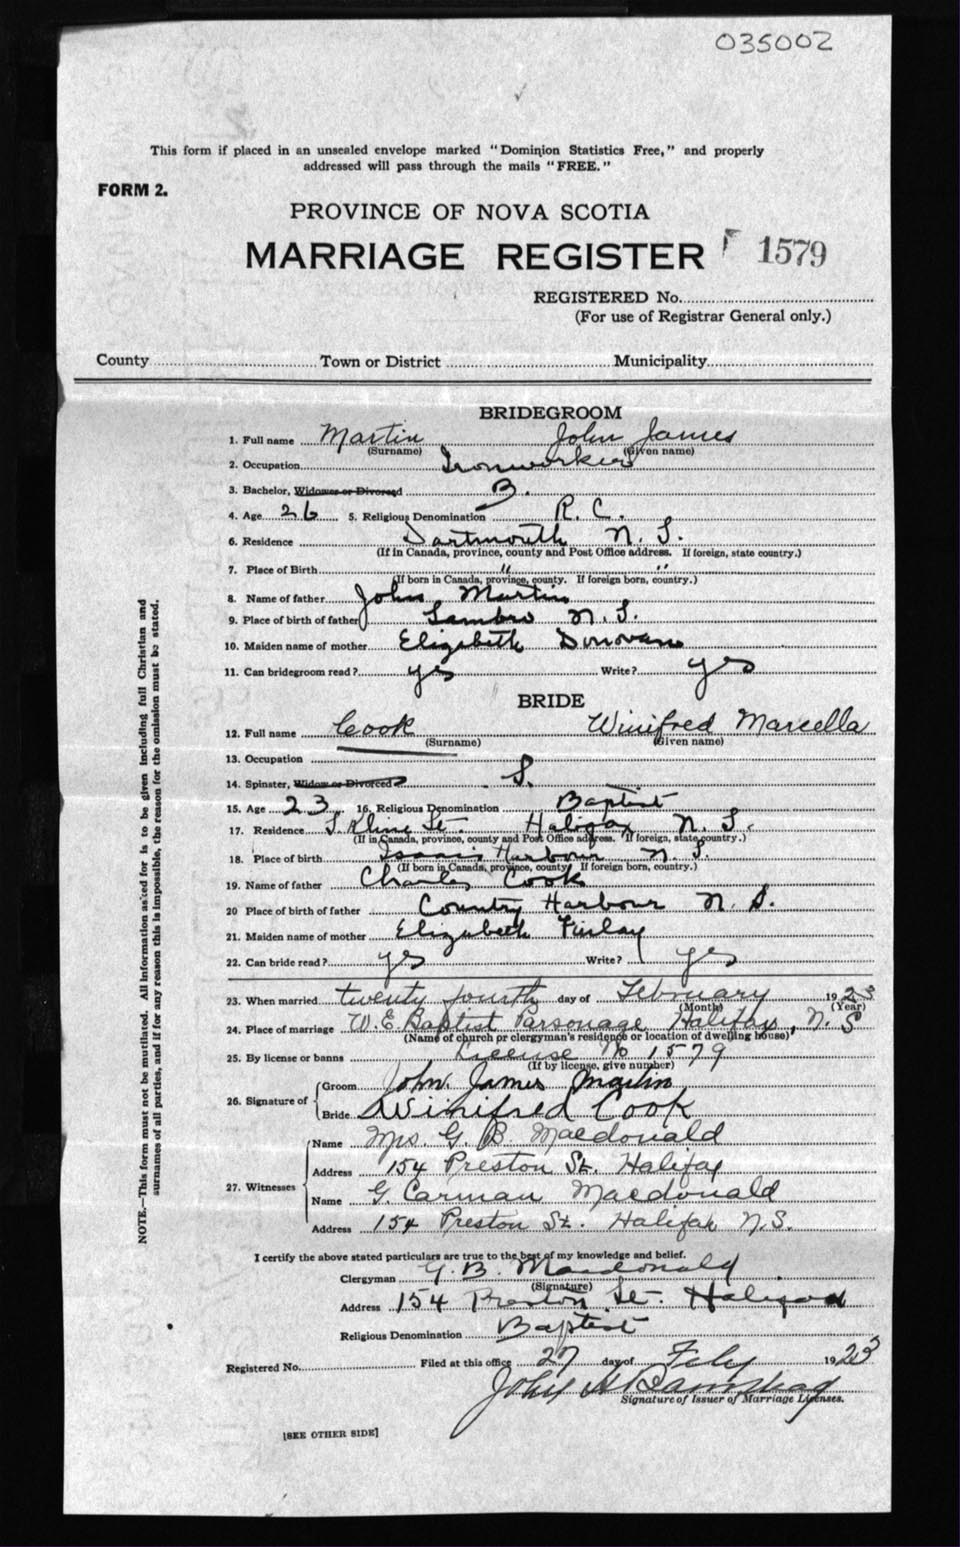 035002
This form if placed in an unsealed envelope marked "Dominion Statistics Free," and properly
addressed will pass through the mails "FREE."
FORM 2.
PROVINCE OF NOVA SCOTIA
MARRIAGE REGISTER 1579
REGISTERED No.
(For use of Registrar General only.)
County Town or District Municipality
BRIDEGROOM
1. Full name Martin John James
(Surname) (Given name)
2. Occupation Ironworker
3. Bachelor, Widower or Divorced B.
4. Age 26 5. Religious Denomination R. C.
6. Residence Dartmouth N. S.
(If in Canada, province, county and Post Office address. If foreign, state country.)
7. Place of Birth " "
(If born in Canada, province, county. If foreign born, country.)
8. Name of father John Martin
9. Place of birth of father Sambro N. S.
10. Maiden name of mother Elizabeth Donovan
11. Can bridegroom read? yes Write? yes
BRIDE
12. Full name Cook Winifred Marcella
(Surname) (Given name)
13. Occupation
14. Spinster, Widow or Divorced S.
15. Age 23 16. Religious Denomination Baptist
17. Residence Kline St. Halifax N. S.
(If in Canada, province, county and Post Office address. If foreign, state country.)
18. Place of birth Isaacs Harbour N. S.
(If born in Canada, province, county. If foreign born, country.)
19. Name of father Charles Cook
20 Place of birth of father Country Harbour N. S.
21. Maiden name of mother Elizabeth Finlay
22. Can bride read? yes Write? yes
23. When married twenty fourth day of February 1923
(Month) (Year)
24. Place of marriage W. E Baptist Parsonage Halifax, N. S
(Name of church or clergyman's residence or location of dwelling house)
25. By license or banns License No 1579
(If by license, give number)
26. Signature of Groom John James Martin
Bride Winifred Cook
27. Witnesses Name Mrs. G. B. Macdonald
Address 154 Preston St. Halifax
Name G. Carman Macdonald
Address 154 Preston St. Halifax N.S.
I certify the above stated particulars are true to the best of my knowledge and belief.
Clergyman G. B. Macdonald
(Signature)
Address 154 Preston St. Halifax
Religious Denomination Baptist
Registered No. Filed at this office 27 day of Feby 1923
John H
Signature of Issuer of Marriage Licenses.
[SEE OTHER SIDE]
NOTE.—This form must not be mutilated. All information asked for is to be given including full Christian and
surnames of all parties, and if for any reason this is impossible, the reason for the omission must be stated.